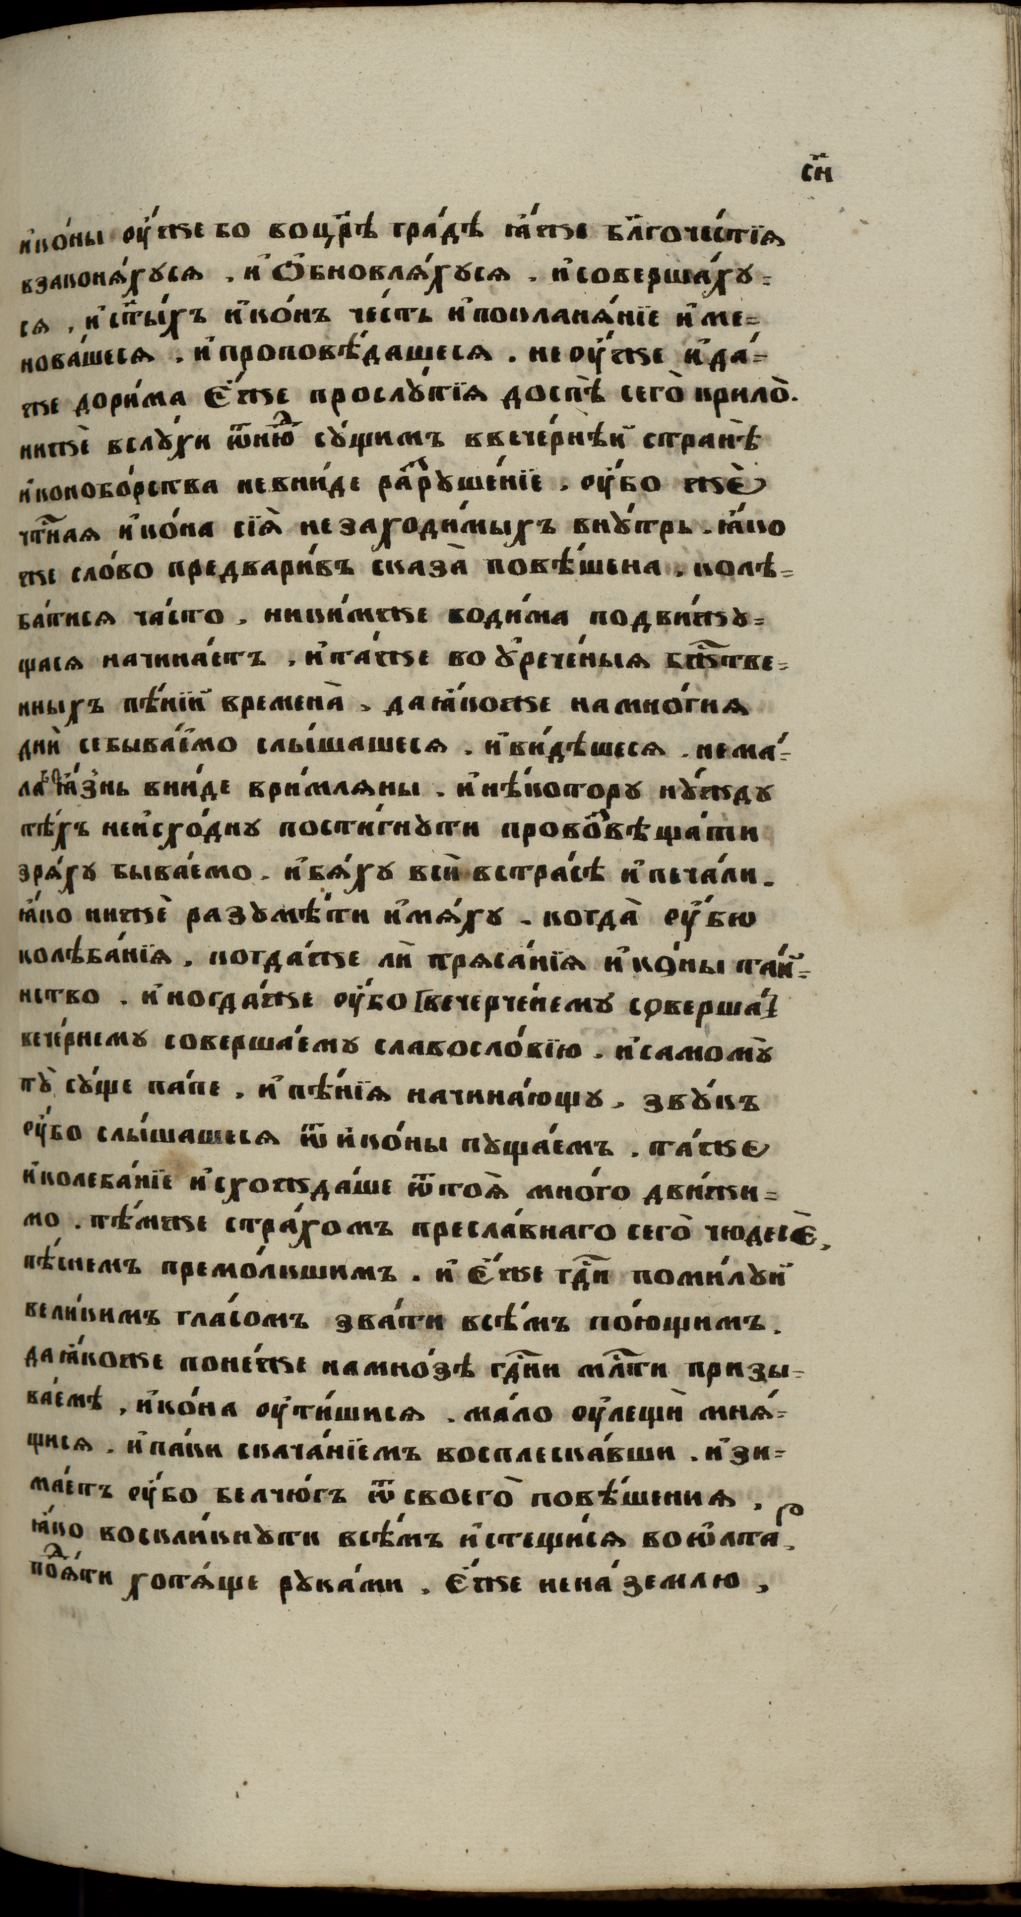 с҃н
ико́ны ѹ҆́же бо воцр҃ѣ гра́дѣ ꙗ҆́же бл҃гоче́стїѧ
взаконѧ́хусѧ . и҆ѻ҆бновлѧ́хусѧ . и҆соверша́ху=
сѧ , и҆ст҃ы́хъ и҆ко́нъ че́сть и҆покланѧ́нїе и҆ме=
нова́шесѧ . и҆проповѣ́дашесѧ . неѹ҆́же и҆да́=
же дори́ма є҆́же прослꙋ́тїѧ доспѣ̀ сего̀ прило̀.
нижѐ вслꙋ́хи ѿню́д сꙋ́щимъ ввече́рнѣй странѣ̀
иконобо́рства невни́де ра́зрꙋше́нїе . ѹ҆́бо жѐ
чт҃наѧ и҆ко́на сїѧ̀ незаходи́мыхъ внꙋ́трь . ꙗ҆́ко
же сло́во предвари́въ сказа̀ повѣ́шена , колѣ=
ба́тисѧ ча́сто , ники́мже води́ма подви́жꙋ=
щасѧ начина́етъ , и҆та́же во ꙋ҆рече́ныѧ бж҃стве=
нныхъ пѣ́нїй времена̀ , даꙗ҆́коже намно́гиѧ
днѝ себыва́емо слы́шашесѧ . и҆ви́дѣшесѧ . нема́=
лабоѧ҆́знь вни́де вримлѧны . и҆нѣ́котору нꙋ́жду
тѣ́хъ неи҆схо́дну пости́гнꙋти провоз̾вѣща́ти
зрѧ́ху быва́емо . и҆бѧ́ху всѝ встра́сѣ и҆печа́ли .
ꙗ҆́ко нижѐ разꙋмѣ́ти и҆мѧ́ху . когда̀ ѹ҆́бѡ
колѣба́нїѧ , когда́же лѝ трѧса́нїѧ и҆ко́ны таи҆́=
нство . и҆ногда́же ѹ҆́бо [вечерчѐнему соверша́]
вече́рнему соверша́ему славосло́вїю . и҆самомꙋ̀
тꙋ̀ сꙋ́ще па́пе , и҆пѣ́нїѧ начина́ющу , звꙋ́къ
ѹ҆́бо слы́шашесѧ ѿ и҆ко́ны пꙋща́емъ . та́же
и҆колеба́нїе и҆схожда́ше ѿтоѧ̀ мно́го дви́жи=
мо . тѣ́мже стра́хомъ пресла́внаго сего̀ чюдесѐ ,
пѣ́снемъ премо́лкшимъ . и҆ є҆́же гдⷭ҇и поми́лꙋй
вели́кимъ гла́сомъ зва́ти всѣ́мъ пою́щимъ .
даꙗ҆́коже поне́же намно́зѣ гдⷭ҇ни млⷭ҇ти призы=
ва́емѣ , и҆ко́на ѹ҆ти́шисѧ . ма́ло ѹ҆́лещѝ мнѧ́=
щисѧ . и҆па́ки скача́нїемъ восплеска́вши . и҆зи=
ма́етъ ѹ҆́бо белчю́гъ ѿсвоего̀ повѣ́шениѧ ,
ꙗ҆́ко воскли́кнꙋти всѣ́мъ и҆стещи́сѧ воѡ҆лта́р .
под̾ѧ́ти хотѧ́ще рꙋка́ми . є҆́же нена́ землю ,